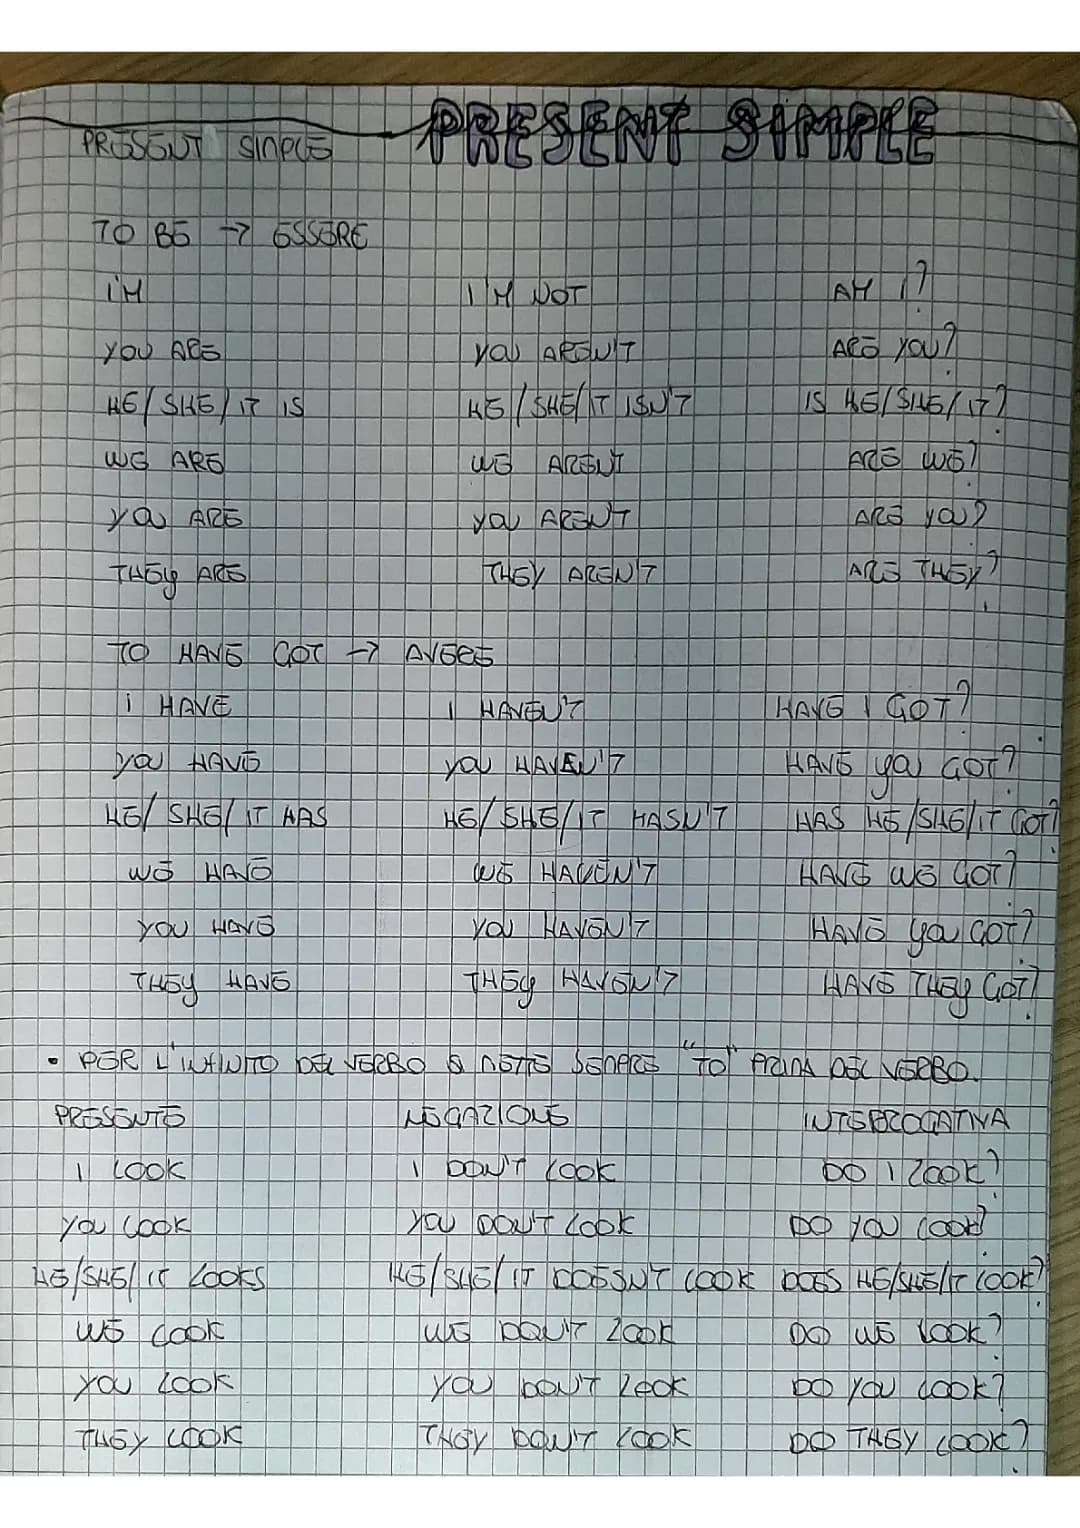 PRESENT SIMPLE PRESENT SIMPLE
TO BE → ESSERE
I'M I'M NOT AM I?
YOU ARE YOU AREN'T ARE YOU?
HE/SHE/IT IS HE/SHE/IT ISN'T IS HE/SHE/IT?
WE ARE WE AREN'T ARE WE?
YOU ARE YOU AREN'T ARE YOU?
THEY ARE THEY AREN'T ARE THEY?
TO HAVE GOT → AVERE
I HAVE I HAVEN'T HAVE I GOT?
YOU HAVE YOU HAVEN'T HAVE YOU GOT?
HE/SHE/IT HAS HE/SHE/IT HASN'T HAS HE/SHE/IT GOT?
WE HAVE WE HAVEN'T HAVE WE GOT?
YOU HAVE YOU HAVEN'T HAVE YOU GOT?
THEY HAVE THEY HAVEN'T HAVE THEY GOT?
• PER L'INFINITO DEL VERBO SI METTE SEMPRE "TO" PRIMA DEL VERBO.
PRESENTE NEGAZIONE INTERROGATIVA
I LOOK I DON'T LOOK DO I LOOK?
YOU LOOK YOU DON'T LOOK DO YOU LOOK?
HE/SHE/IT LOOKS HE/SHE/IT DOESN'T LOOK DOES HE/SHE/IT LOOK?
WE LOOK WE DON'T LOOK DO WE LOOK?
YOU LOOK YOU DON'T LOOK DO YOU LOOK?
THEY LOOK THEY DON'T LOOK DO THEY LOOK?